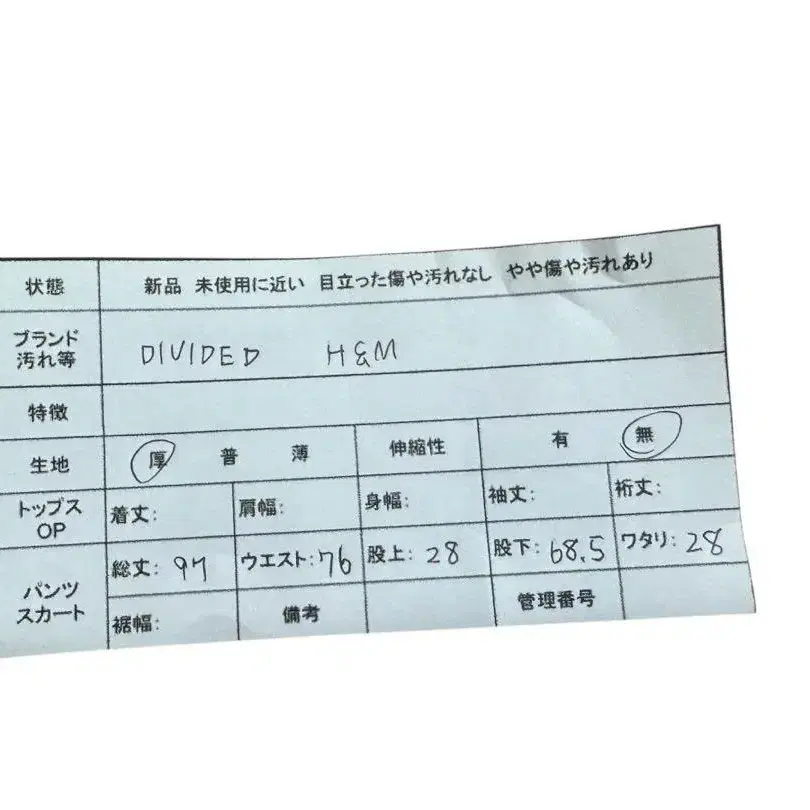 状態 新品 未使用に近い 目立った傷や汚れなし やや傷や汚れあり
ブランド
汚れ等 DIVIDED H&M
特徴
生地 厚 普 薄 伸縮性 有 無
トップス
OP 着丈: 肩幅: 身幅: 袖丈: 裄丈:
パンツ
スカート 総丈: 97 ウエスト: 76 股上: 28 股下: 68.5 ワタリ: 28
裾幅: 備考 管理番号